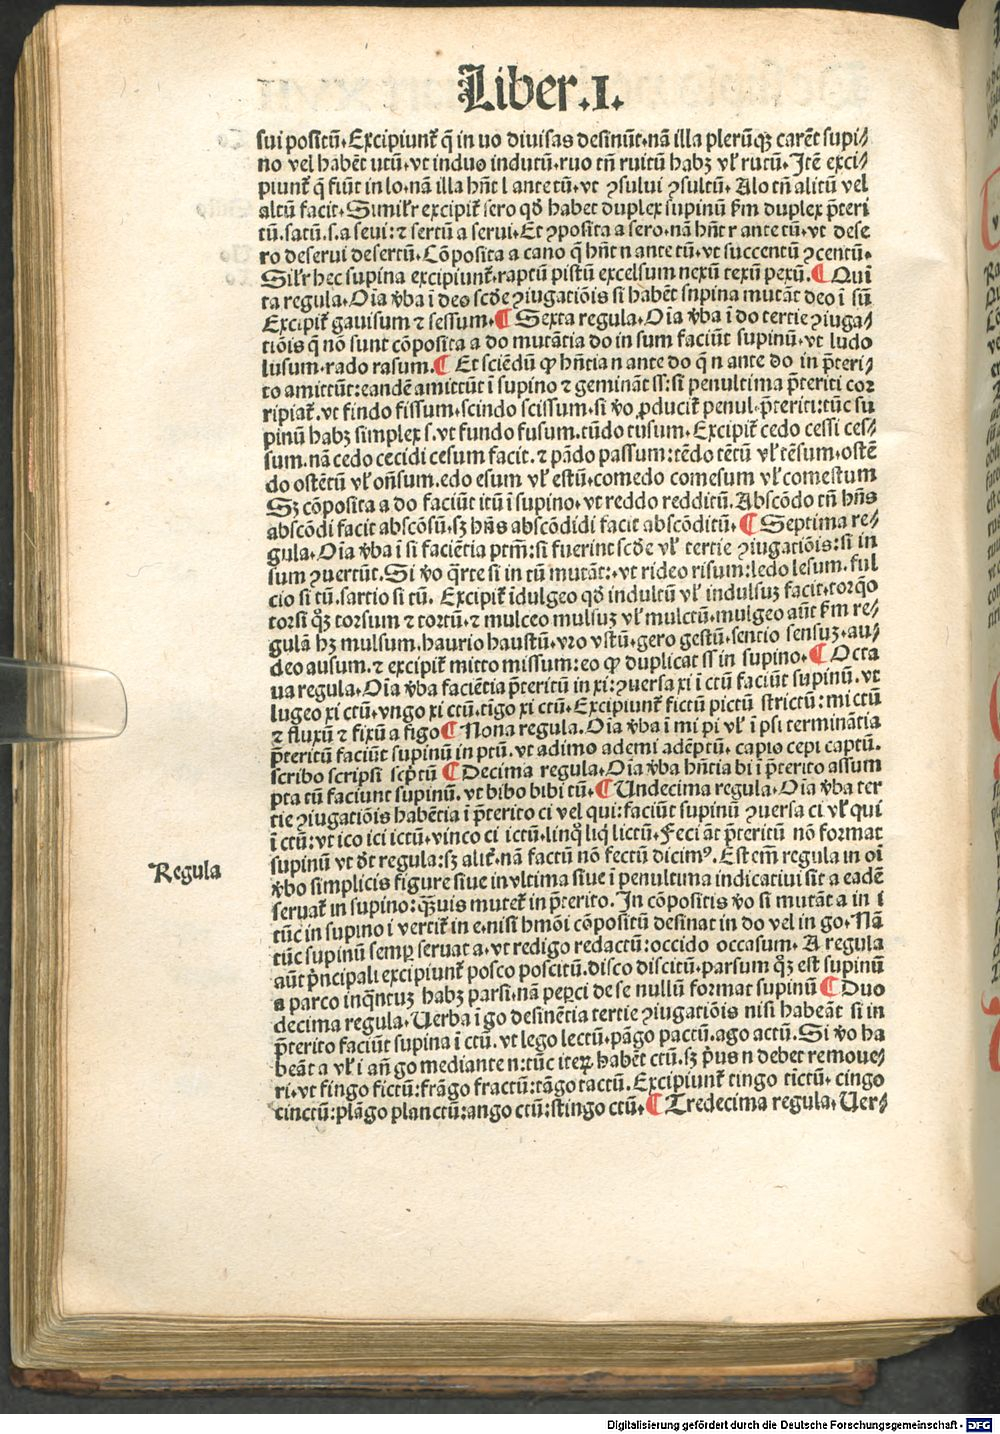 Liber.I.
sui positū. Excipiunt̄ q̄ in uo diuisas desinūt. nā illa plerūqꝫ carēt supi⸗
no vel habēt utū. vt induo indutū. ruo tn̄ ruitū habꝫ vl̓ rutū. Itē exci⸗
piunt̄ q̄ fiūt in lo. nā illa hn̄t l ante tū. vt ꝯsului ꝯsultū. Alo tn̄ alitū vel
altū facit. Simil̓r excipit̄ sero qd̓ habet duplex supinū ẜm duplex p̄teri
tū. satū. s. a seui: ⁊ sertū a serui. Et ꝯposita a sero. nā hn̄t r ante tū. vt dese
ro deserui desertū. Cōposita a cano q̄ hn̄t n ante tū. vt succentū ꝯcentū.
Sil̓r hec supina excipiunt̄. raptū pistū excelsum nexū texū pexū. ¶ Qui
ta regula. Oīa v̄ba ī deo scd̓e ꝯiugatiōis si habēt supina mutāt deo ī sū
Excipit̄ gauisum ⁊ sessum. ¶ Sexta regula. Oīa v̄ba ī do tertie ꝯiuga⸗
tiōis q̄ nō sunt cōposita a do mutātia do in sum faciūt supinū. vt ludo
lusum. rado rasum. ¶ Et sciēdū ꝙ hn̄tia n ante do q̄ n ante do in p̄teri⸗
to amittūt: eandē amittūt ī supino ⁊ gemināt ss: si penultima p̄teriti cor
ripiat̄. vt findo fissum. scindo scissum. si v̄o ꝓducit̄ penul. p̄teriti: tūc su
pinū habꝫ simplex s. vt fundo fusum. tūdo tusum. Excipit̄ cedo cessi ces⸗
sum. nā cedo cecidi cesum facit. ⁊ pādo passum: tēdo tētū vl̓ tēsum. ostē
do ostētū vl̓ on̄sum. edo esum vl̓ estū. comedo comesum vl̓ comestum
Sꝫ cōposita a do faciūt itū ī supino. vt reddo redditū. Abscōdo tn̄ hn̄s
abscōdi facit abscōsū. sꝫ hn̄s abscōdidi facit abscōditū. ¶ Septima re⸗
gula. Oīa v̄ba ī si faciētia ptm̄: si fuerint scd̓e vl̓ tertie ꝯiugatiōis: si in
sum ꝯuertūt. Si v̄o q̄rte si in tū mutāt: . vt rideo risum: ledo lesum. ful
cio si tū. sartio si tū. Excipit̄ īdulgeo qd̓ indultū vl̓ indulsuꝫ facit. torq̄o
torsi qꝫ torsum ⁊ tortū. ⁊ mulceo mulsuꝫ vl̓ mulctū. mulgeo aūt ẜm re⸗
gulā hꝫ mulsum. haurio haustū. vro vstū. gero gestū. sentio sensuꝫ. au⸗
deo ausum. ⁊ excipit̄ mitto missum: eo ꝙ duplicat ss in supino. ¶ Octa
ua regula. Oīa v̄ba faciētia p̄teritū in xi: ꝯuersa xi ī ctū faciūt supinū. vt
lugeo xi ctū. vngo xi ctū. tīgo xi ctū. Excipiunt̄ fictū pictū strictū: mictū
⁊ fluxū ⁊ fixū a figo ¶ Nona regula. Oīa v̄ba ī mi pi vl̓ ī psi terminātia
p̄teritū faciūt supinū in ptū. vt adimo ademi adēptū. capio cepi captū.
scribo scripsi scp̄tū ¶ Decima regula. Oīa v̄ba hn̄tia bi ī p̄terito assum
pta tū faciunt supinū. vt bibo bibi tū. ¶ Undecima regula. Oīa v̄ba ter
tie ꝯiugatiōis habētia ī p̄terito ci vel qui: faciūt supinū ꝯuersa ci vl̓ qui
ī ctū: vt ico ici ictū. vinco ci ictū. linq̊ liq̓ lictū. Feci āt p̄teritū nō format
supinū vt d̓t regula: sꝫ alit̄. nā factū nō fectū dicimꝰ. Est em̄ regula in oī
Regula
v̄bo simplicis figure siue in vltima siue ī penultima indicatiui sit a eadē
seruat̄ in supino: q̄uis mutet̄ in p̄terito. In cōpositis v̄o si mutāt a in i
tūc in supino i vertit̄ in e. nisi hmōi cōpositū desinat in do vel in go. Nā
tūc supinū semꝑ seruat a. vt redigo redactū: occido occasum. A regula
aūt p̓ncipali excipiunt̄ posco poscitū. disco discitū. parsum qꝫ est supinū
a parco inq̄ntuꝫ habꝫ parsi. nā peꝑci de se nullū format supinū ¶ Duo
decima regula. Uerba ī go desinētia tertie ꝯiugatiōis nisi habeāt si in
p̄terito faciūt supina ī ctū. vt lego lectū. pāgo pactū. ago actū. Si v̄o ha
beāt a vl̓ i an̄ go mediante n: tūc iteꝝ habēt ctū. sꝫ p̓us n debet remoue⸗
ri. vt fingo fictū: frāgo fractū: tāgo tactū. Excipiunt̄ tingo tīctū. cingo
cinctū: plāgo planctū: ango ctū: stingo ctū. ¶ Tredecima regula. Uer⸗
Digitalisierung gefördert durch die Deutsche Forschungsgemeinschaft - DFG